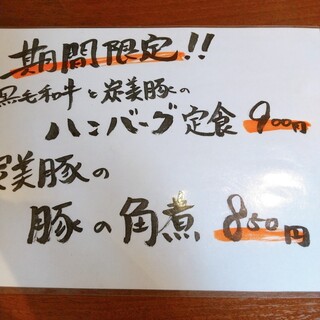 期間限定!!
黒毛和牛と炭美豚の
ハンバーグ定食 900円
炭美豚の
豚の角煮 850円